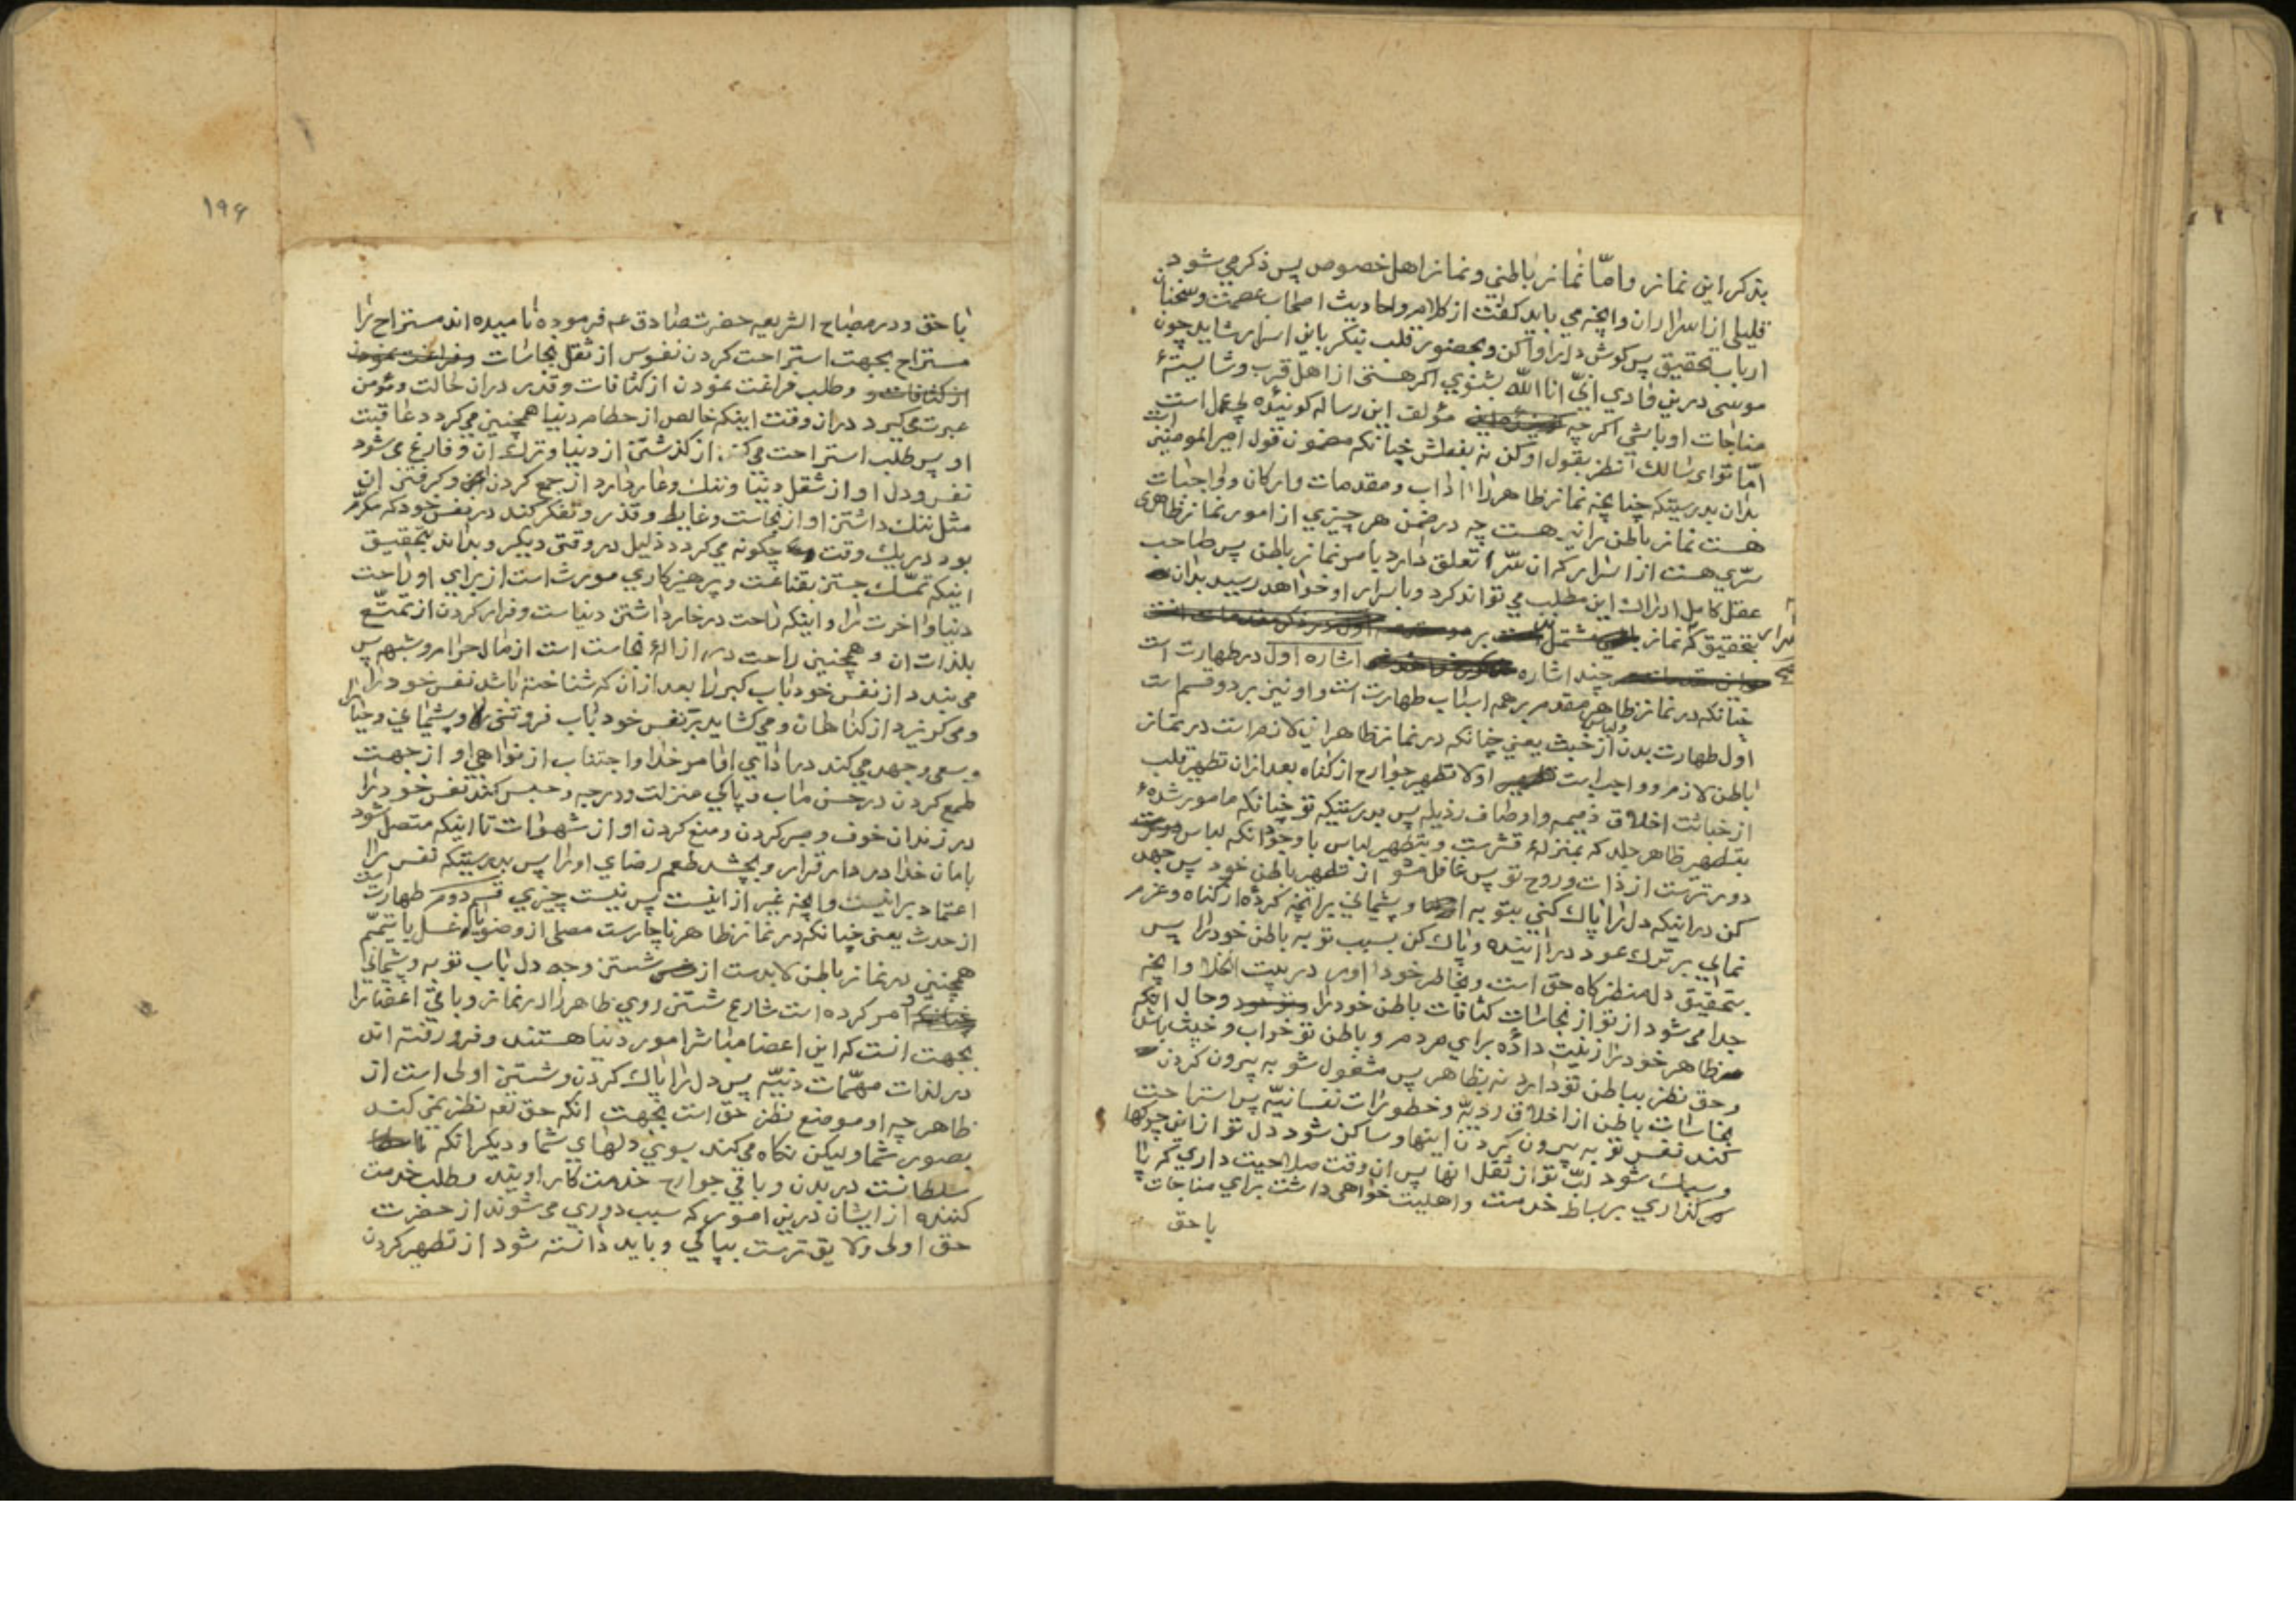 بذکر این نماز و امّا نماز باطنی و نماز اهل خصوص پس ذکر می شود
قلیلی از اسرار ان و انچه می باید گفت از کلام و احادیث اصحاب عصمت و سخنان
ارباب تحقیق پس کوش دل را واکن و بحضور قلب بنکر باین اسرار شاید چون
موسی درین وادی انّی انا اللّه بشنوی اکر هستی از اهل قرب و شایستهٔ
مناجات او باشی اکرچه مؤلف این رساله کوینده بی عمل است
امّا تو ای سالک نظر بقول او کن نه بفعلش چنانکه مضمون قول امیر المومنین است
بدان بدرستیکه چنانچه نماز ظاهر را اداب و مقدمات و ارکان و واجبات
هست نماز باطن را نیز هست چه در ضمن هر چیزی از امور نماز ظاهری
سرّی هست از اسرار که ان سّر تعلق دارد بامر نماز باطن پس صاحب
عقل کامل ادراک این مطلب می تواند کرد و باسرار او خواهد رسید بدان
بتحقیق که نماز مشتمل بر
چند اشاره اشاره اول در طهارت است
چنانکه در نماز ظاهر مقدم بر همه اسباب طهارت است و او نیز بر دو قسم است
اول طهارت بدن و لباس از خبث یعنی چنانکه در نماز ظاهر این لازم است در نماز
باطن لازم و واجب است اولا تطهیر جوارح از کناه بعد ازان تطهیر قلب
از خباثت اخلاق ذمیمه و اوصاف رذیله پس بدرستیکه تو چنانکه مامور شدهٔ
بتطهیر ظاهر جلد که بمنزلهٔ قشرست و بتطهیر لباس با وجود انکه لباس
دورترست از ذات و روح تو پس غافل مشو از تطهیر باطن خود پس جهد
کن در اینکه دل را پاک کنی بتوبه و پشیمانی بر انچه کردهٔ از کناه و عزم
نمایی بر ترک عود در اینده و پاک کن بسبب توبه باطن خود را پس
بتحقیق دل منظر کاه حق است و بخاطر خود اور در بیت الخلا و انچه
جدا می شود از تو از نجاسات کثافات باطن خود را و حال انکه
ظاهر خود را زینت دادهٔ برای مردم و باطن تو خراب و خبیث باشد
و حق نظر بباطن تو دارد نه بظاهر پس مشغول شو به بیرون کردن
نجاسات باطن از اخلاق ردیّه و خطورات نفسانیّه پس استراحت
کند نفس تو به بیرون کردن اینها و ساکن شود دل تو از این چرکها
و سبک شود لبّ تو از ثقل انها پس ان وقت صلاحیت داری که پا
کذاری بر بساط خدمت و اهلیت خواهی داشت برای مناجات
با حق
۱۹۶
با حق و در مصباح الشریعه حضرت صادق عم فرموده نامیده اند مستراح را
مستراح بجهت استراحت کردن نفوس از ثقل نجاسات و فراغت نمودن
از کثافات و طلب فراغت نمودن از کثافات و قذر در ان حالت و مؤمن
عبرت می گیرد در ان وقت اینکه خالص از حطام دنیا همچنین می کردد عاقبت
او پس طلب استراحت می کند از کذشتن از دنیا و ترک ان و فارغ می شود
نفس و دل او از شغل دنیا و ننک و عار دارد از جمع کردن و کرفتن ان
مثل ننک داشتن او از نجاست و غایط و قذر و تفکر کند در نفس خود که مکرّم
بود در یک وقت چکونه می کردد ذلیل در وقتی دیکر و بداند بتحقیق
اینکه تمسّک جستن بقناعت و پرهیزکاری مورث است از برای او راحت
دنیا و اخرت را و اینکه راحت در خوار داشتن دنیاست و فرار کردن از تمتّع
بلذات ان و همچنین راحت در ازالهٔ نجاست است از مال حرام و شبهه پس
می بندد از نفس خود باب کبر را بعد از ان که شناخته باشد نفس خود را
و می کریزد از کناهان و می کشاید بر نفس خود باب فروتنی و پشیمانی و حیا را
و سعی و جهد می کند در ادای اوامر خدا و اجتناب از نواهی او از جهت
طمع کردن در حسن ماب و پاکی منزلت و درجه و حبس کند نفس خود را
در زندان خوف و صبر کردن و منع کردن او از شهوات تا اینکه متصل شود
بامان خدا در دار قرار و بچشد طعم رضای او را پس بدرستیکه نفس را
اعتماد بر اینست و انچه غیر از اینست پس نیست چیزی قسم دوم طهارت است
از حدث یعنی چنانکه در نماز ظاهر ناچارست مصلی از وضو یا غسل یا تیمّم
همچنین در نماز باطن لابدست از شستن وجه دل باب توبه و پشیمانی
و امر کرده است شارع شستن روی ظاهر را در نماز و باقی اعضا را
بجهت انست که این اعضا مباشر امور دنیا هستند و فرو رفته اند
در لذات مهمّات دنیّه پس دل را پاک کردن و شستن اولی است از
ظاهر چه او موضع نظر حق است بجهت انکه حق تعه نظر نمی کند
بصور شما و لیکن نکاه می کند بسوی دلهای شما و دیکر انکه
سلطانست در بدن و باقی جوارح خدمت کار اویند و طلب خدمت
کننده از ایشان درین امور که سبب دوری می شوند از حضرت
حق اولی و لایق ترست بپاکی و باید دانسته شود از تطهیر کردن